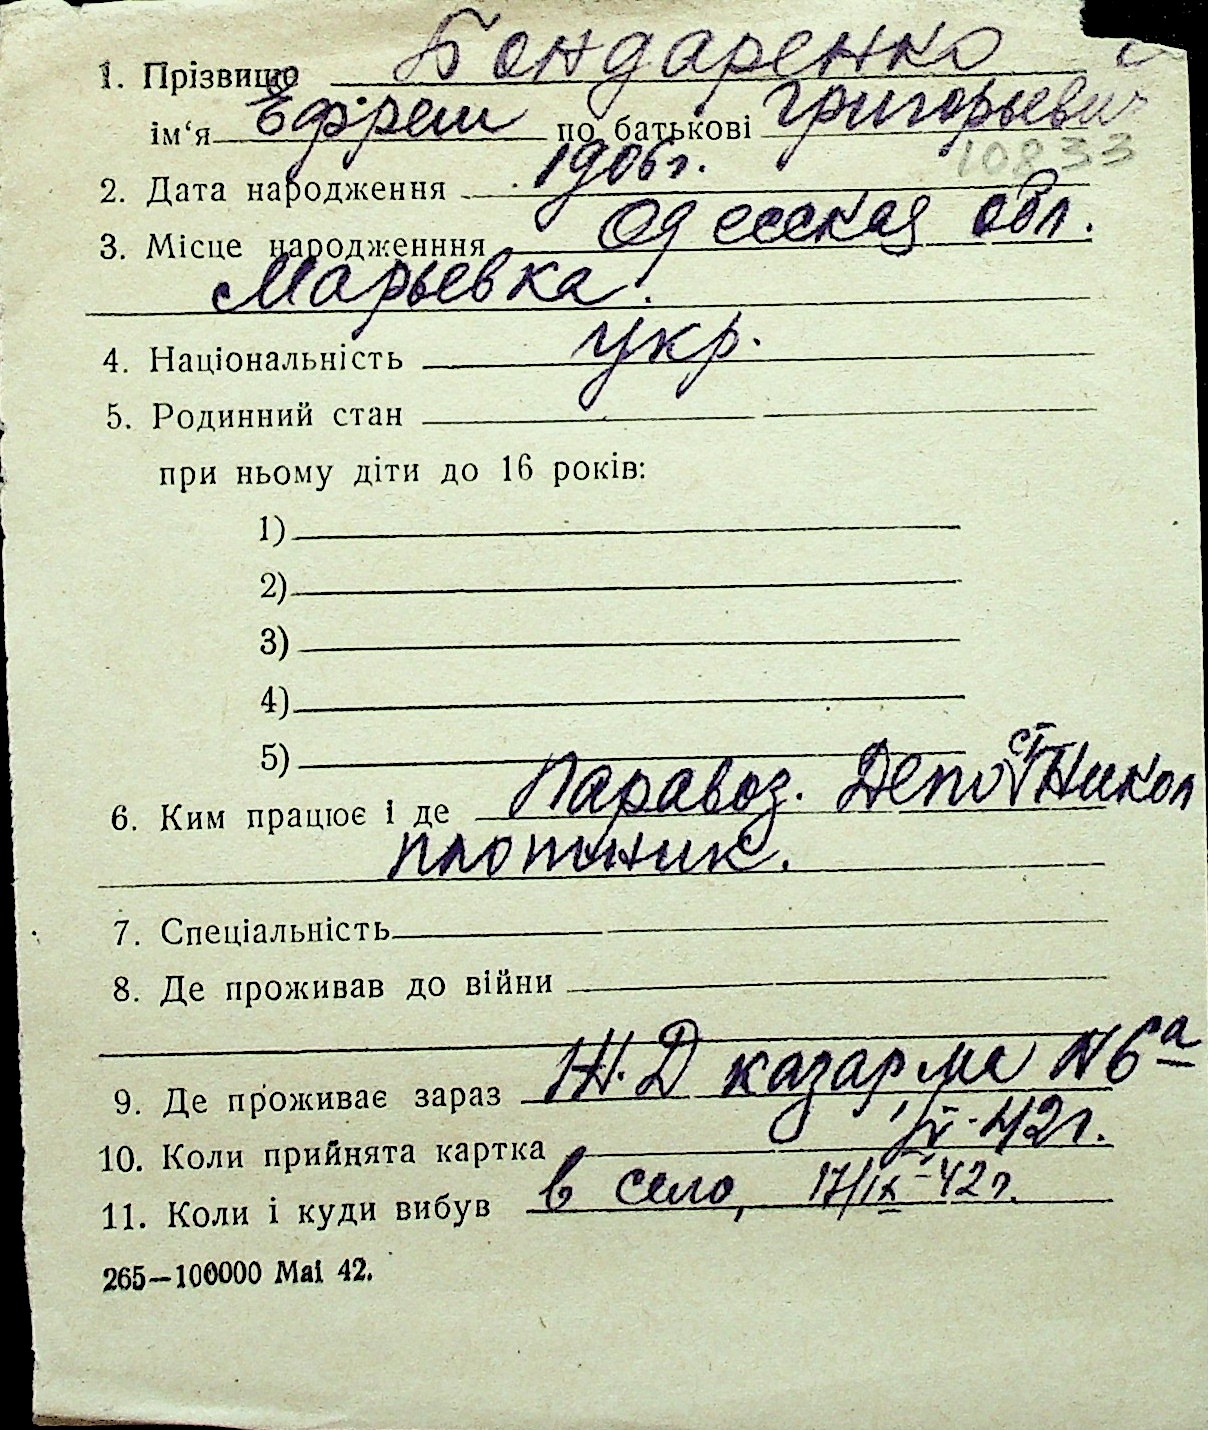 1. Прізвище Бондаренко
ім‘я Ефрем по батькові Григорьевич
10833
2. Дата народження 1906г.
3. Місце народженння Одесская обл.
Марьевка.
4. Національність укр.
5. Родинний стан
при ньому діти до 16 років:
1)
2)
3)
4)
5)
6. Ким працює і де Паравоз. Депо ст Никол
плотник.
7. Спеціальність
8. Де проживав до війни
9. Де проживає зараз Ж.Д казарма N6а
10. Коли прийнята картка 42г.
11. Коли і куди вибув в село, 17/IX-42г.
265—100000 Mai 42.